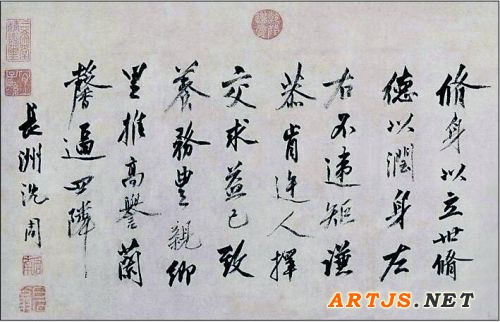 脩身以立世脩
德以潤身左
右不違矩謙
恭肯迕人擇
交求益己致
養務豐親鄉
里推高譽蘭
馨逼四隣
長洲沈周
ARTJS.NET